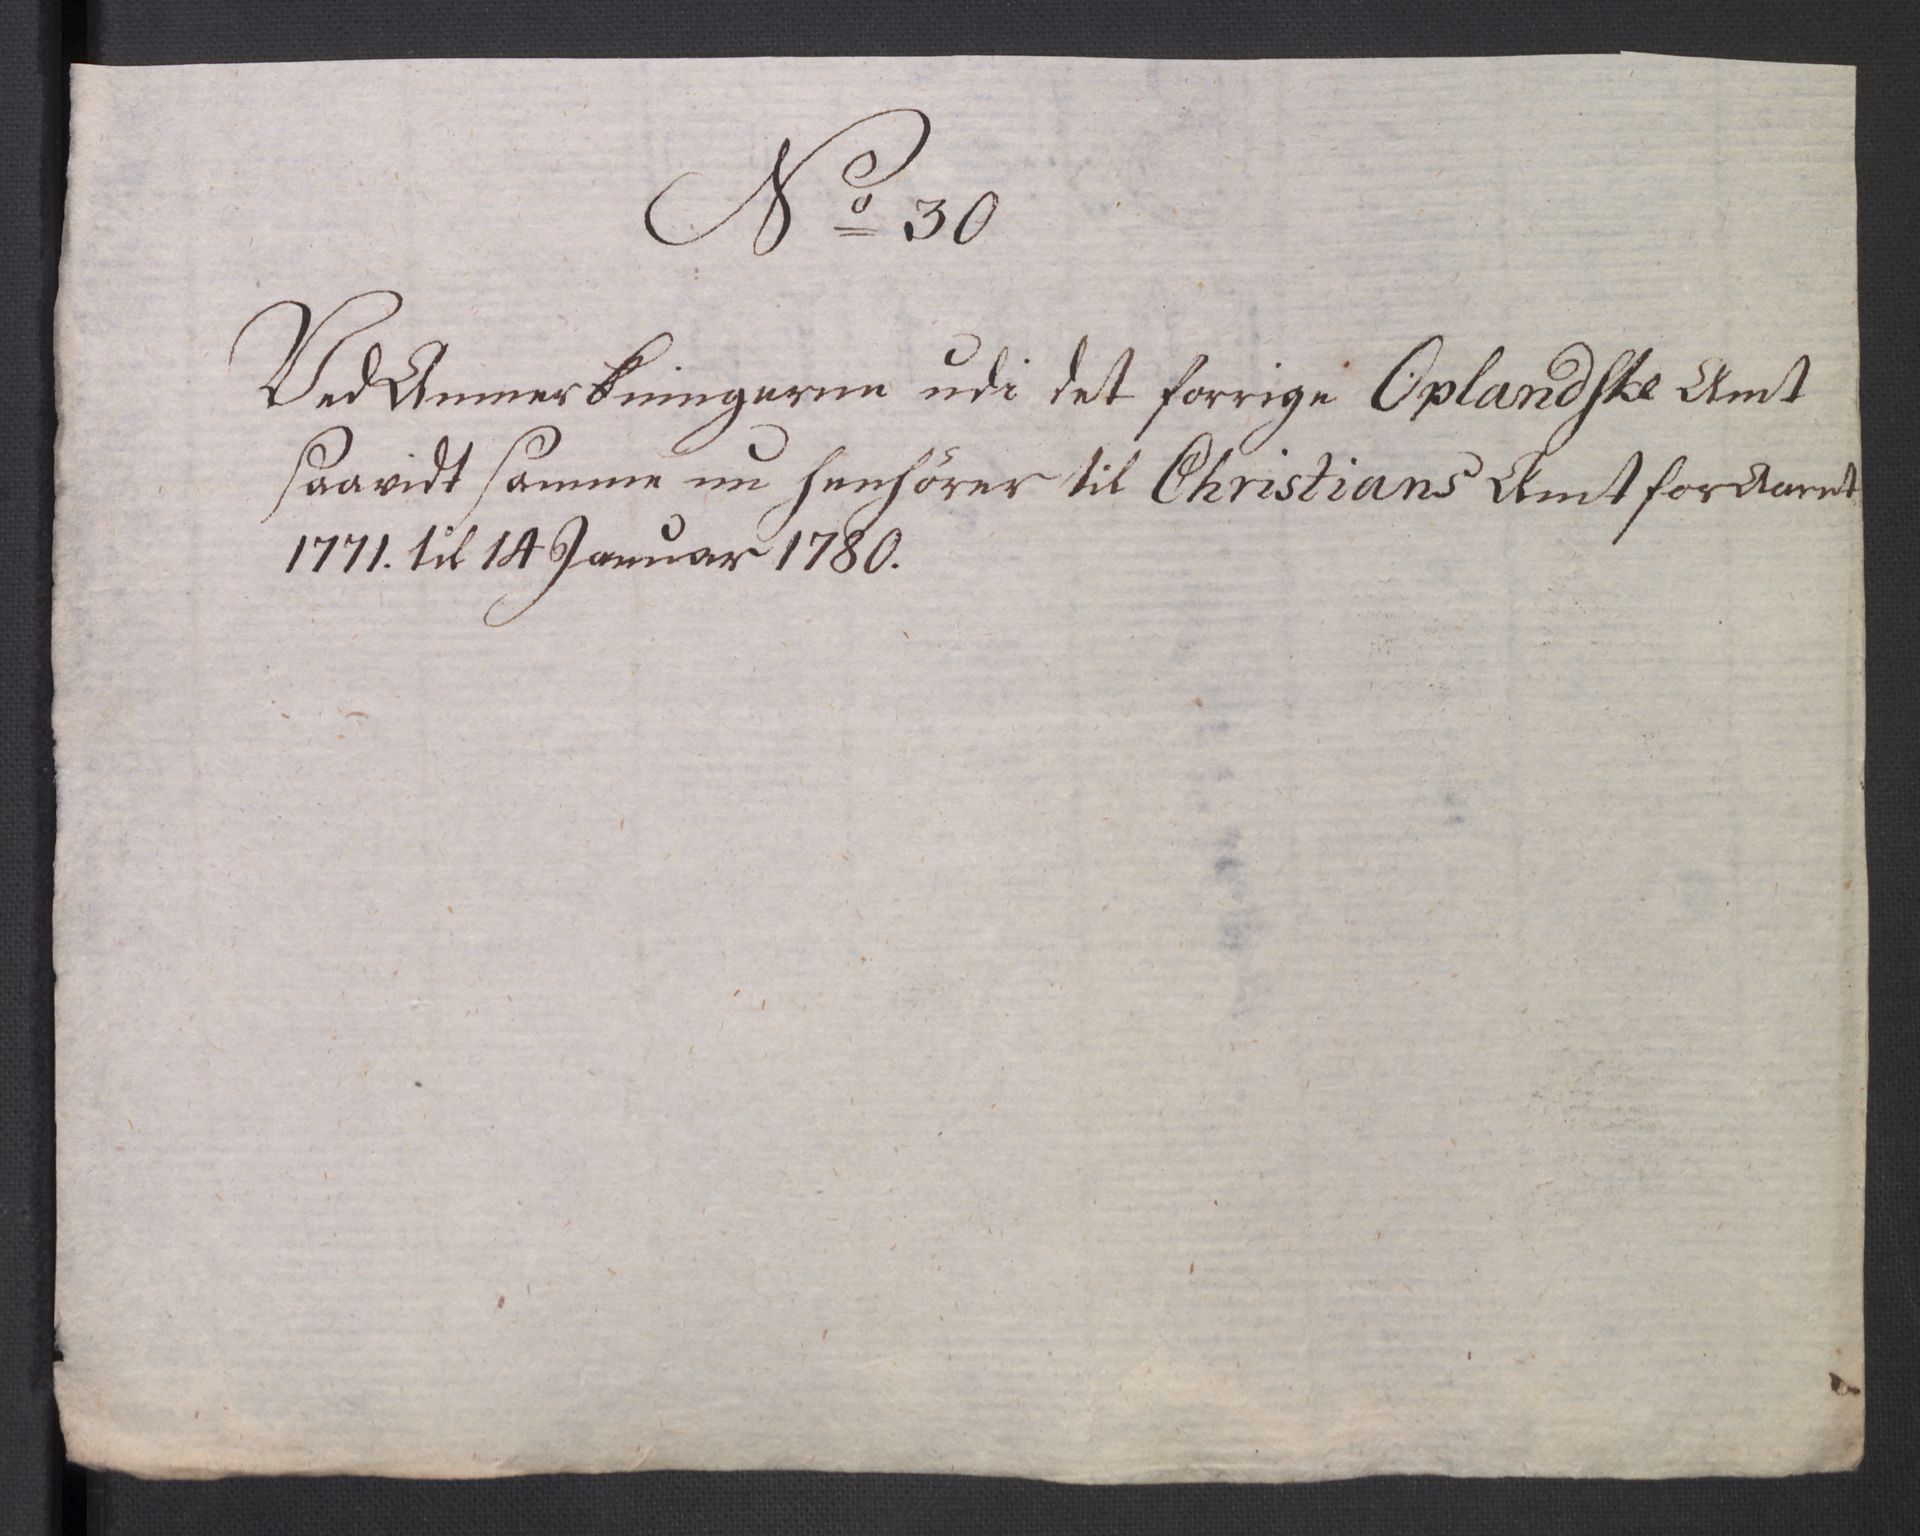 No 30
Ved Anmerkningerne udi det forrige Oplandske Amt
saavidt samme nu henhörer til Christians Amt for Aaret
1771. til 14 Januar 1780.